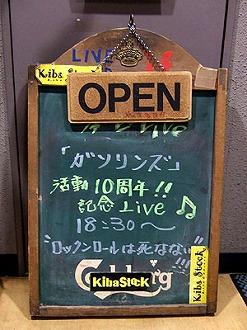 LIVE
Kibs Stock
OPEN
「ガソリンズ」
活動10周年!!
記念Live ♫
18:30〜
"ロックンロールは死なない"!!
KibaStocK
Kibs Stock